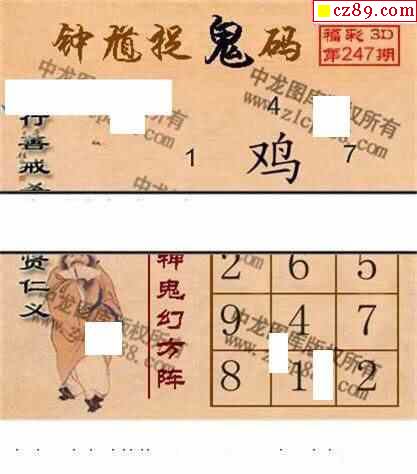 cz89.com
钟馗捉鬼码
福彩3D
第247期
中龙图库版权所有
行善戒杀
4
1 鸡 7
贤仁义
神鬼幻方阵
2 6 5
9 4 7
8 1 2